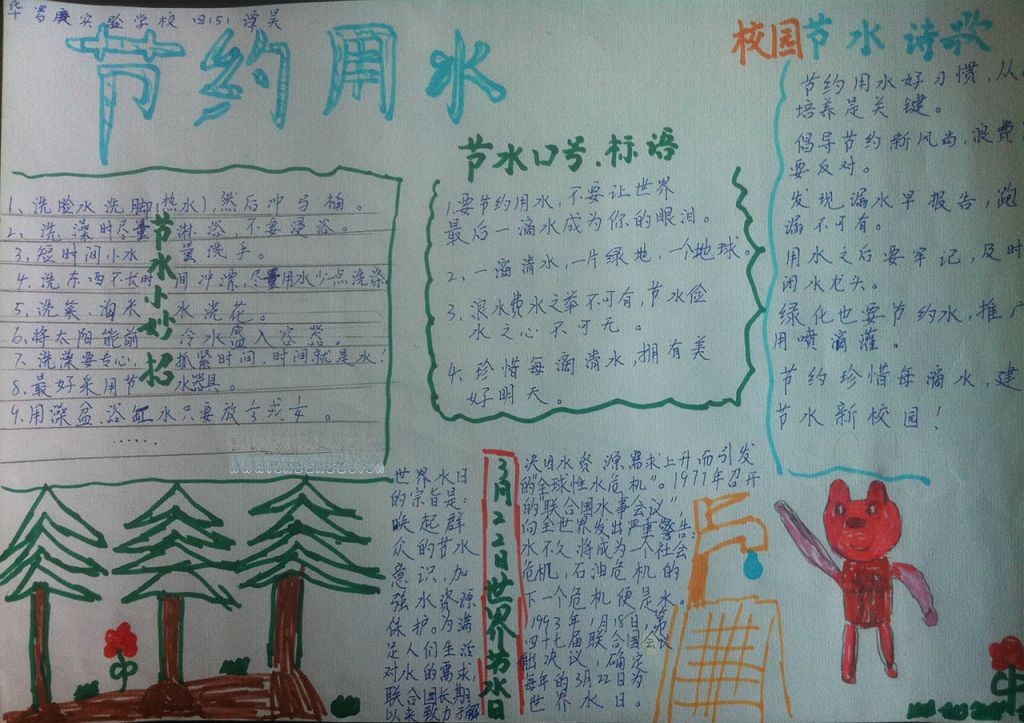 华罗庚实验学校 四(5) 谭昊
节约用水
校园节水诗歌
节水小妙招
1、洗脸水洗脚(热水),然后冲马桶。
2、洗澡时尽量淋浴,不要浸浴。
3、短时间小水量洗手。
4、洗东西不长时间冲漂,尽量用水少点洗涤
5、洗菜、淘米水洗花。
6、将太阳能前冷水盛入容器。
7、洗澡要专心,抓紧时间,时间就是水!
8、最好采用节水器具。
9、用澡盆、浴缸水只要放
……
节水口号、标语
1.要节约用水,不要让世界
最后一滴水成为你的眼泪。
2、一滴清水,一片绿地,一个地球。
3、浪水费水之举不可有,节水俭
水之心不可无。
4、珍惜每滴清水,拥有美
好明天。
节约用水好习惯,从
培养是关键。
倡导节约新风尚,浪费
要反对。
发现漏水早报告,跑
漏不可有。
用水之后要牢记,及时
闭水龙头。
绿化也要节约水,推广
用喷滴灌。
节约珍惜每滴水,建
节水新校园!
3月22日世界节水日
世界水日
的宗旨是:
唤起群
众的节水
意识,加
强水资源
保护。为满
足人们生活
对水的需求,
联合国长期
以来致力于解
决因水资源需求上升而引发
的"全球性水危机"。1977年召开
的"联合国水事会议"
向全世界发出严重警告:
水不久将成为一个社会
危机,石油危机的
下一个危机便是水。
1993年1月18日,第
四十七届联合国会议
决议,确定
每年的3月22日为
世界水日。